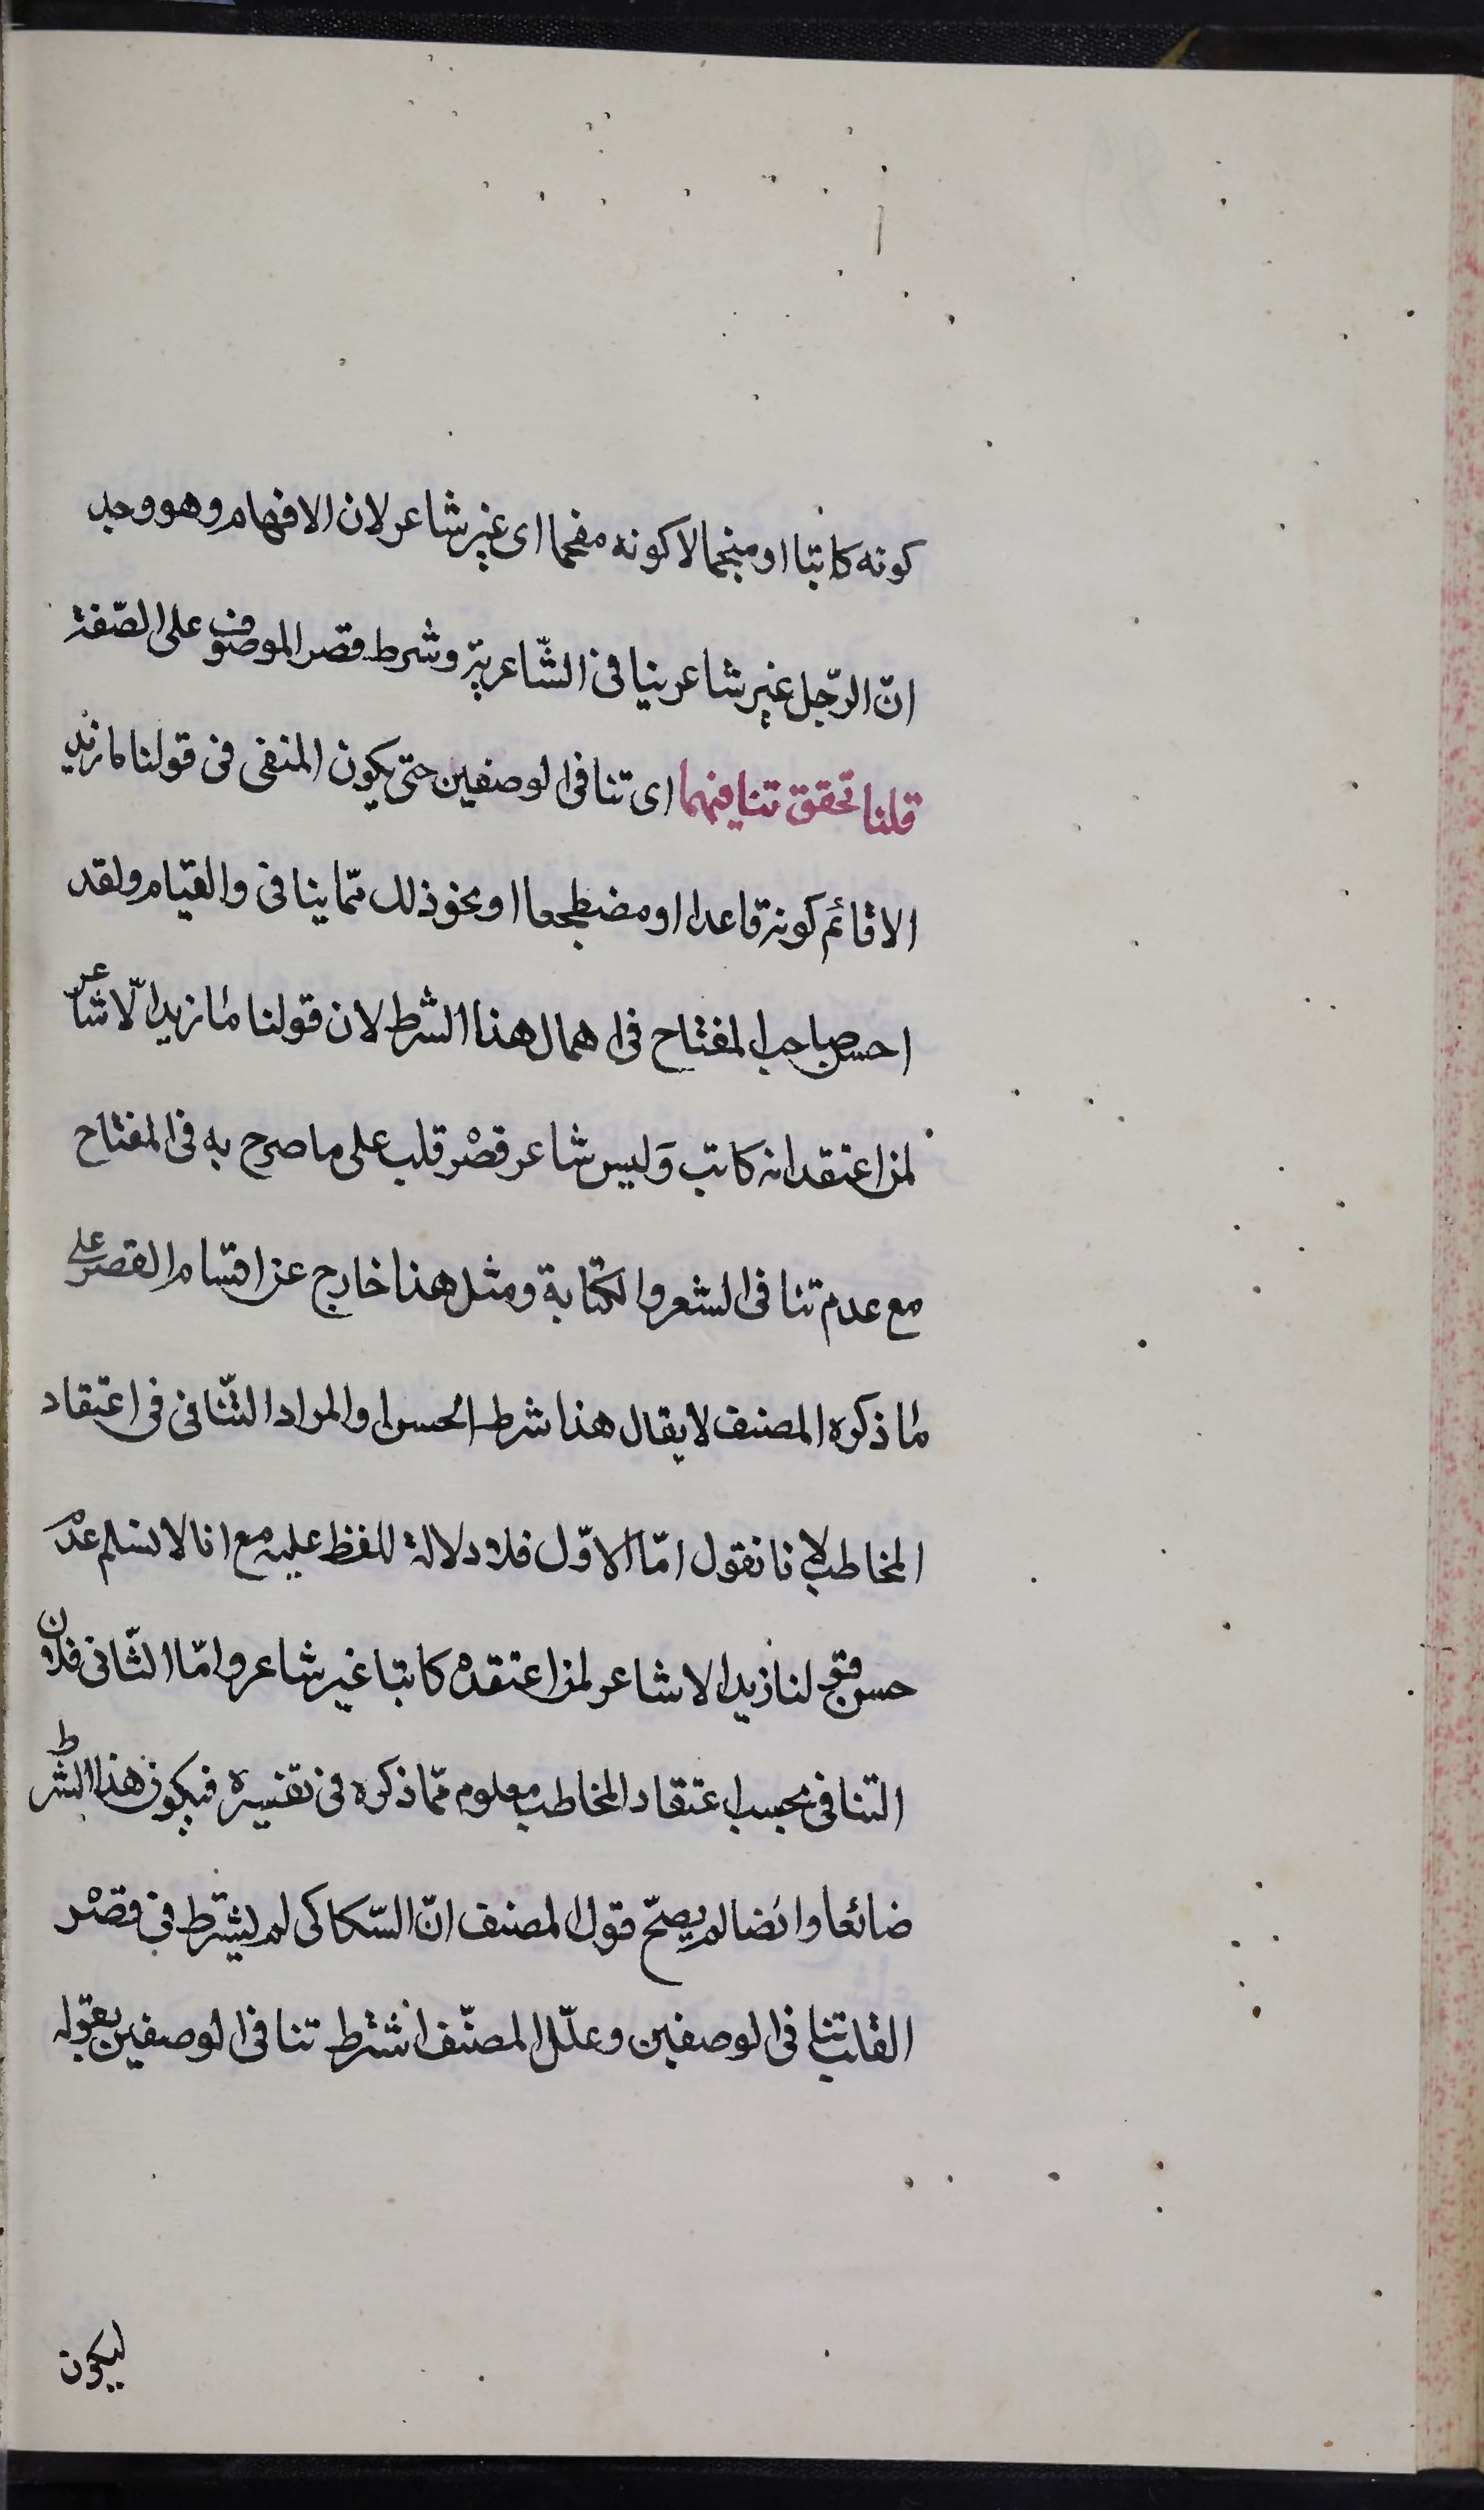 كونه كاتبا او منجما لا كونه مفحما اى غير شاعر لان الافهام وهو وجد
انّ الرّجل غير شاعر ينافى الشّاعرية وشرط قصر الموصوف على الصّفة
قلنا تحقق تنافيهما اى تنافى الوصفين حتى يكون المنفى فى قولنا ما زيد
الا قائم كونه قاعدا او مضطجعا او نحو ذلك ممّا ينافى والقيام ولقد
احسن صاحب المفتاح فى اهمال هذا الشرط لان قولنا ما زيد الّا شاعر
لمن اعتقد انه كاتب وَليس شاعر قصْر قلب على ما صرح به فى المفتاح
مع عدم تنافى الشعر والكتابة ومثل هذا خارج عن اقسام القصر على
ما ذكره المصنف لا يقال هذا شرط الحسن او المراد التّنافى فى اعتقاد
المخاطب لانا نقول امّا الاوّل فلا دلالة للفظ عليه مع انا لا نسلم عدم
حسن قولنا ما زيد الا شاعر لمن اعتقده كاتبا غير شاعر وامّا الثّانى فلان
التنافى بحسب اعتقاد المخاطب معلوم ممّا ذكره فى تفسيره فيكون هذا الشرط
ضائعا وايضا لم يصحّ قول المصنف انّ السّكاكى لم يشترط فى قصْر
القلب تنافى الوصفين وعلّل المصنّف اشترط تنافى الوصفين بقوله
ليكون